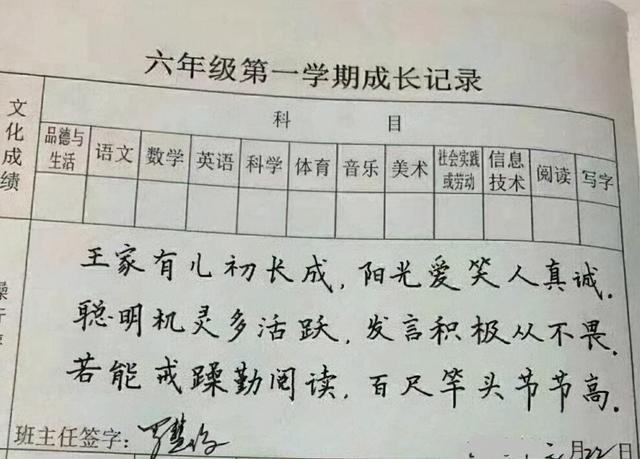 六年级第一学期成长记录
文化成绩
科目
品德与生活 语文 数学 英语 科学 体育 音乐 美术 社会实践或劳动 信息技术 阅读 写字
王家有儿初长成，阳光爱笑人真诚．
聪明机灵多活跃，发言积极从不畏．
若能戒躁勤阅读，百尺竿头节节高．
班主任签字：
月22日